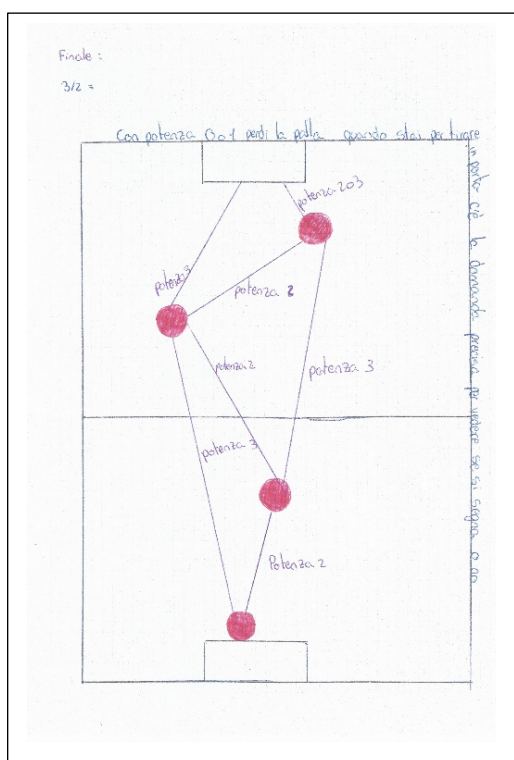 Finale :
3/2 =
Con potenza 0 o 1 perdi la palla quando stai per tirare
in porta c'è la domanda precisa per vedere se si segna o no
potenza 2 o 3
potenza 3
potenza 2
potenza 2
potenza 3
potenza 3
Potenza 2